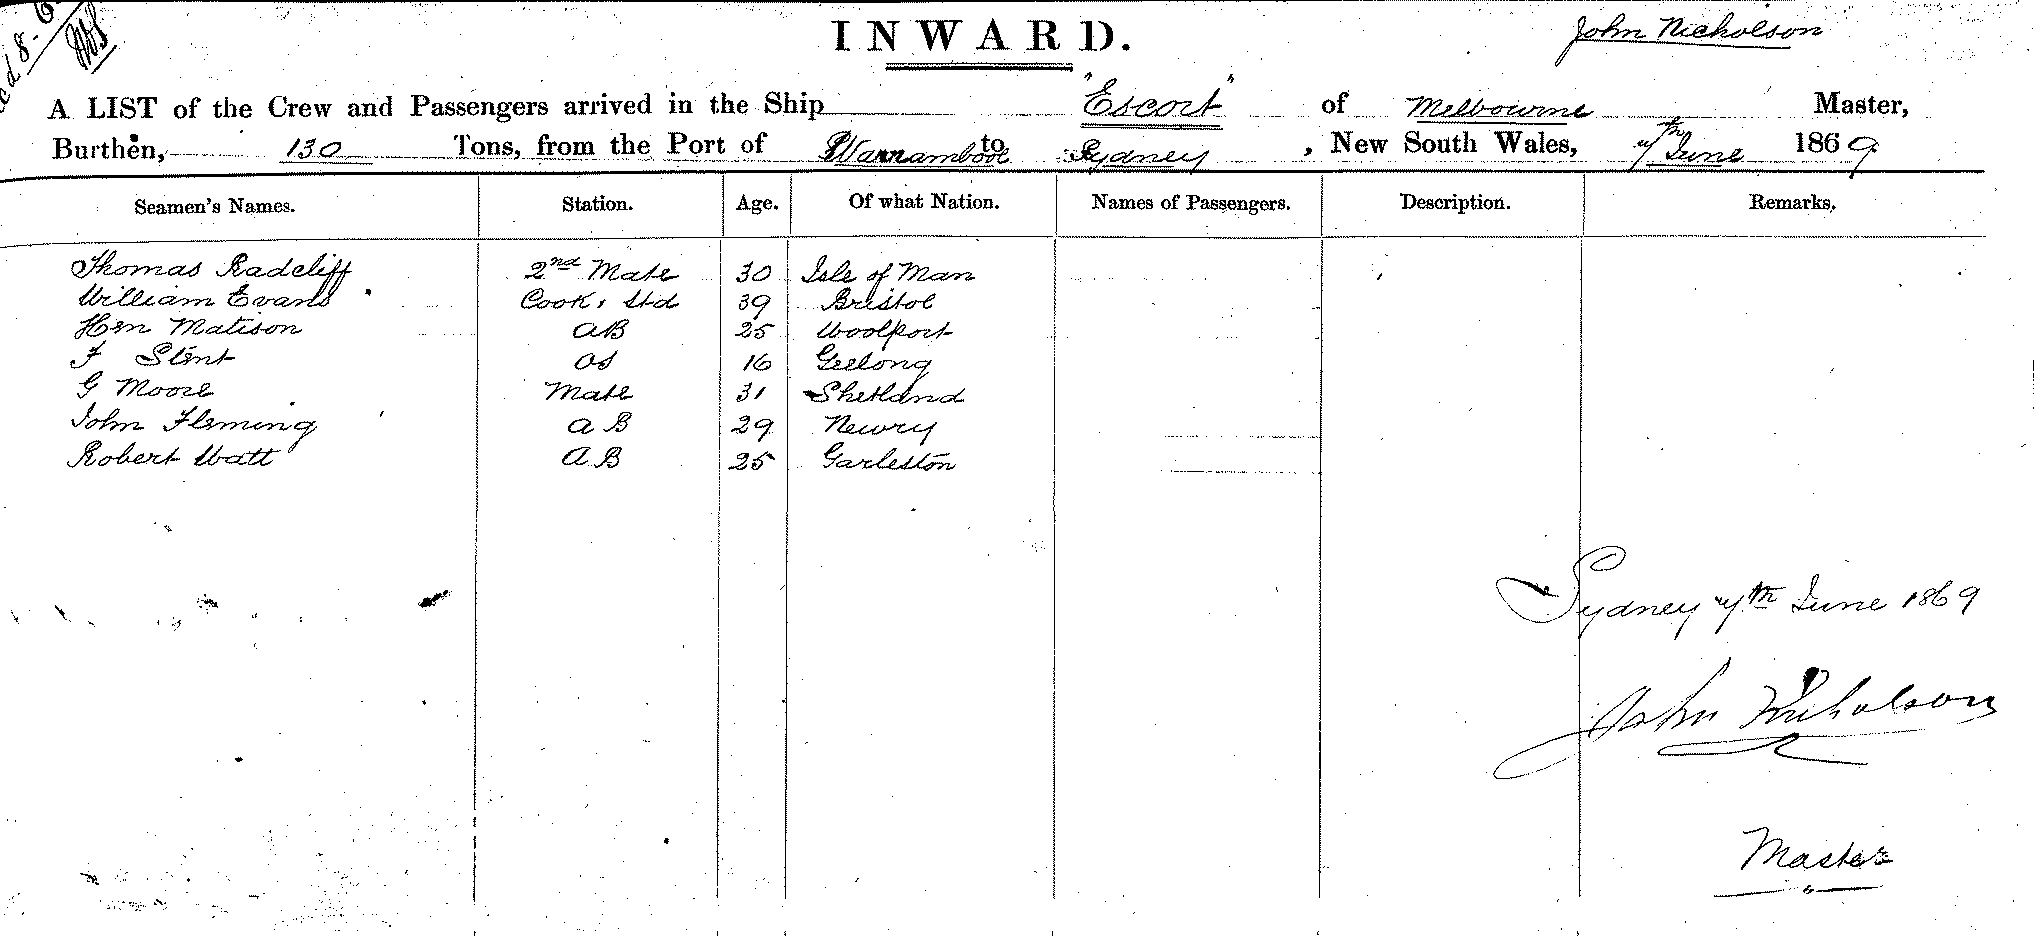 INWARD.
John Nicholson
A LIST of the Crew and Passengers arrived in the Ship "Escort" of Melbourne Master,
Burthen, 130 Tons, from the Port of Warrambool to Sydney, New South Wales, 7th June 1869
Seamen's Names. Station. Age. Of what Nation. Names of Passengers. Description. Remarks.
Thomas Radcliff 2nd Mate 30 Isle of Man
William Evans Cook, Std 39 Bristol
Hen Matison AB 25 Woolport
F Stent OS 16 Geelong
G Moore Mate 31 Shetland
John Fleming AB 29 Newry
Robert Watt AB 25 Garleston
Sydney 7th June 1869
John Nicholson
Master